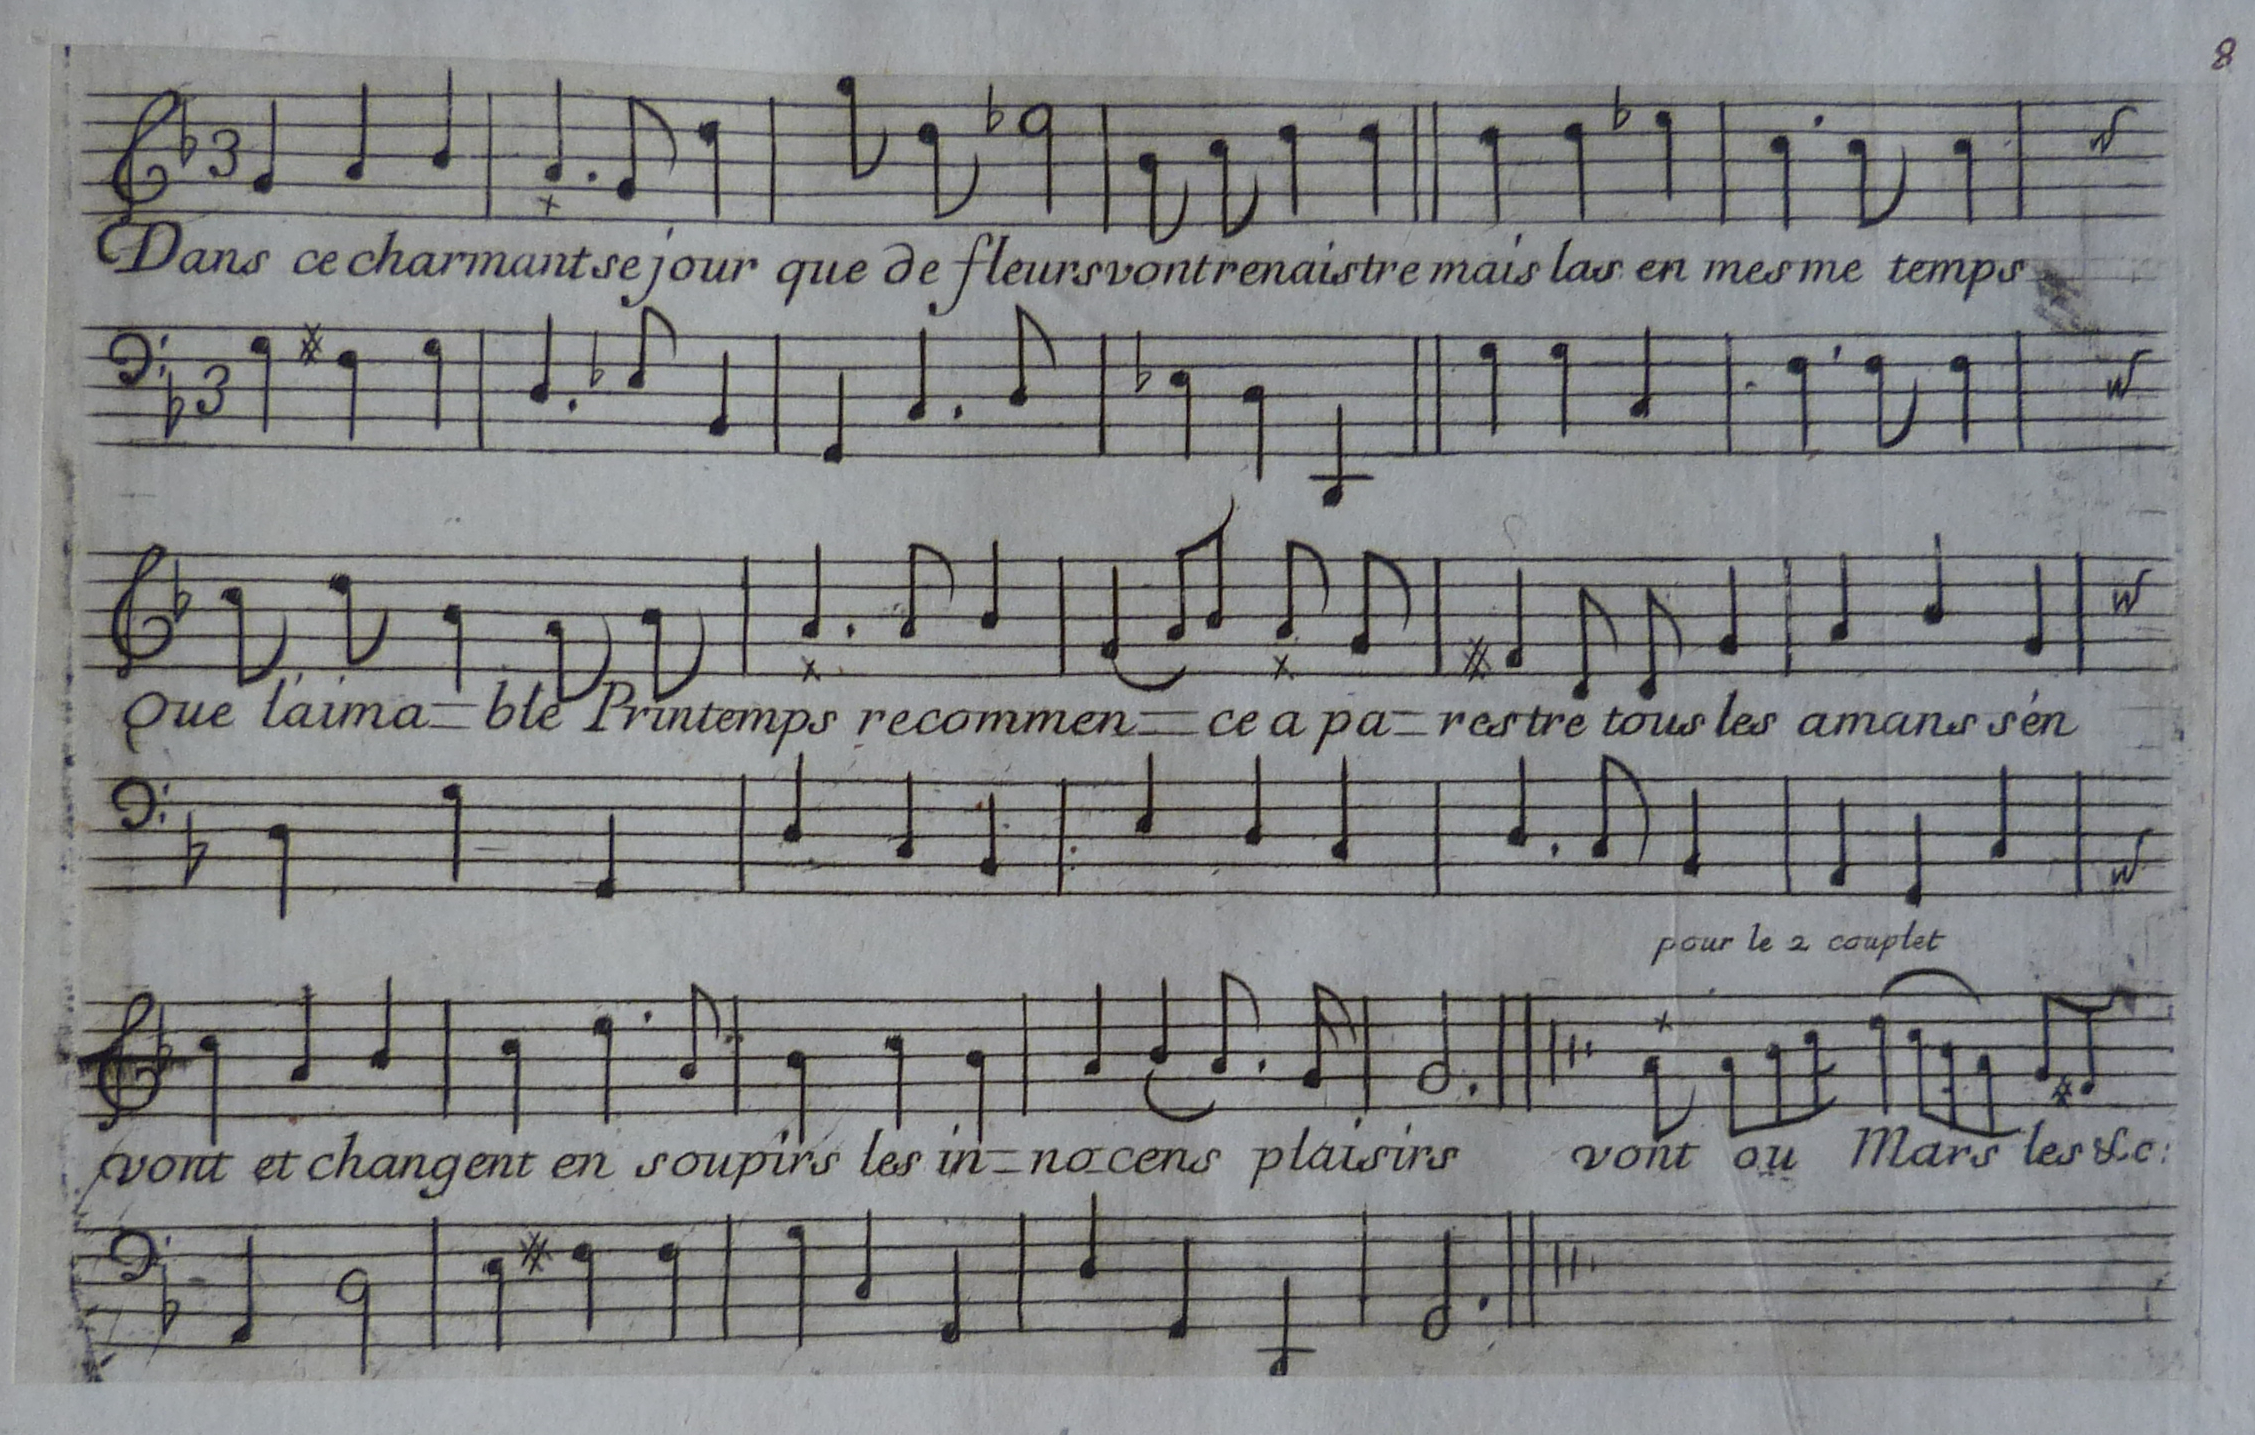 8
3
Dans ce charmant sejour que de fleurs vont renaistre mais las en mesme temps
3
Que l'aima=ble Printemps recommen=ce a pa=restre tous les amans s'en
pour le 2 couplet
vont et changent en soupirs les in=no=cens plaisirs vont ou Mars les &c: